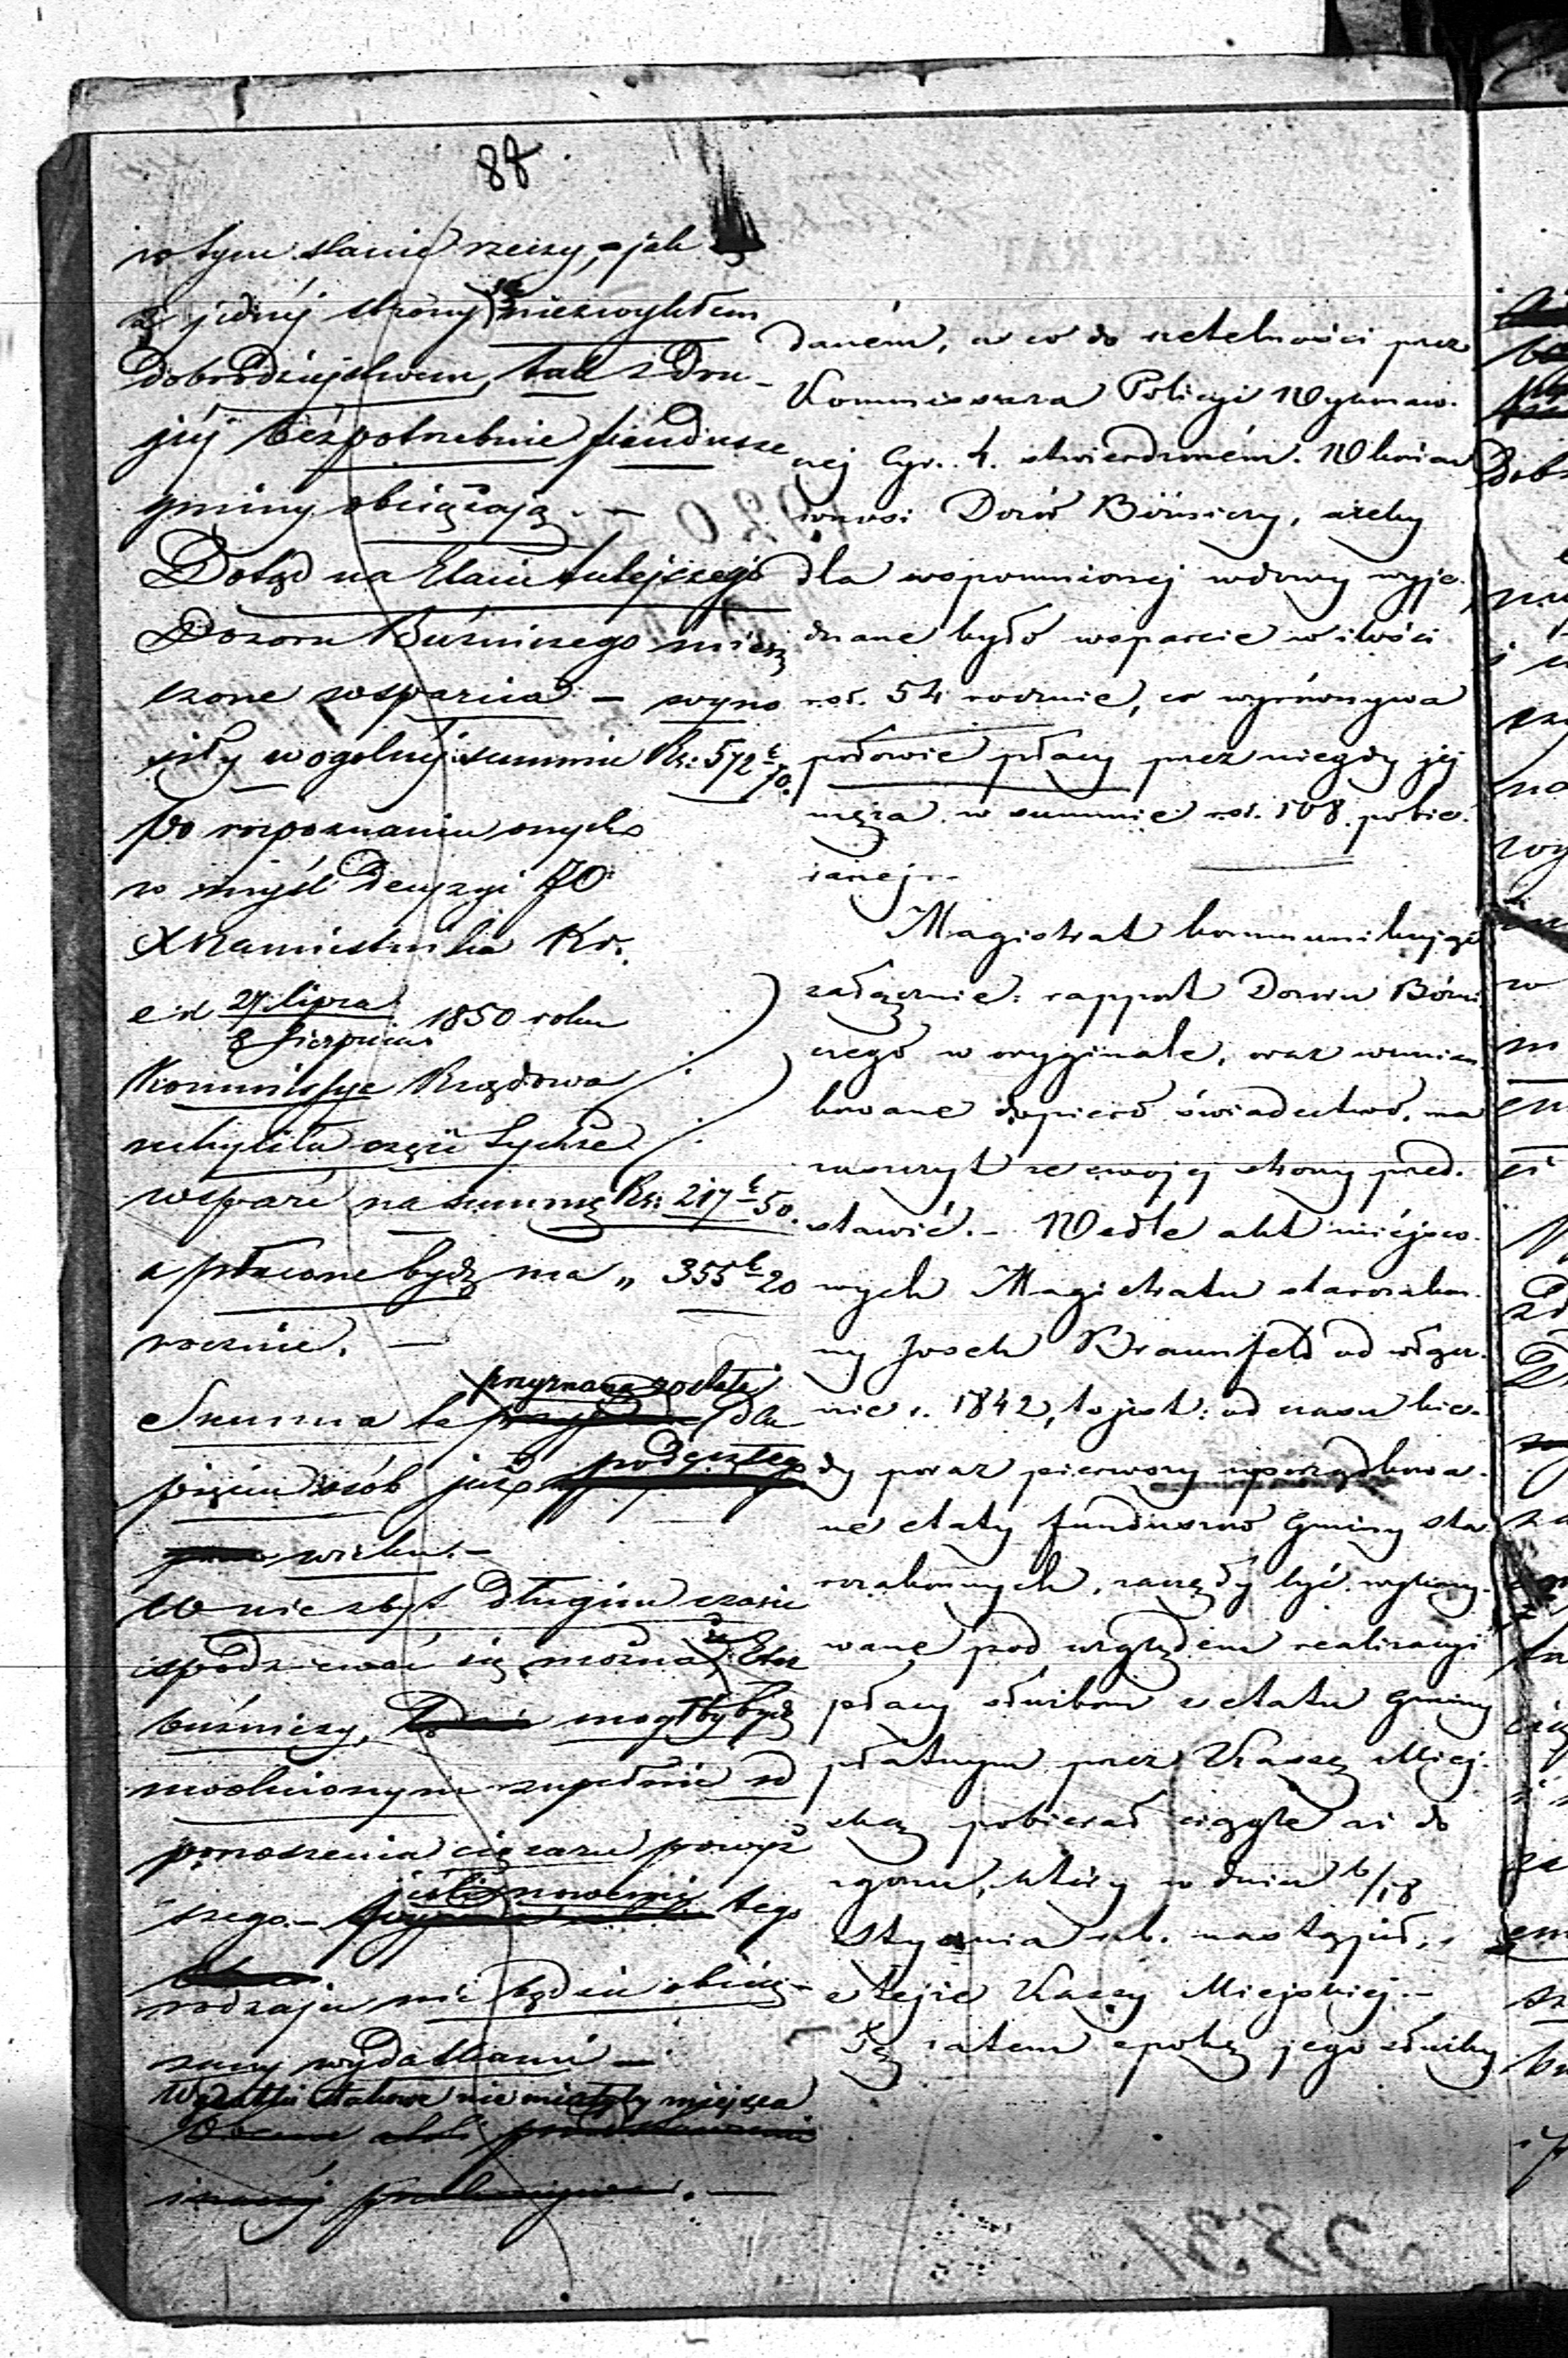 88
w tym stanie rzeczy, jak
z jednej strony są niezwykłem
Dobrodziejstwem, tak z dru-
giéj bezpotrzebnie fundusze
gminy obciążają. –
Dotąd na Etacie tutejszego
Dozoru Bużniczego miesz
czone wsparcia – wyno
siły w ogólnej summie Rs: 572 k 70.
po rozpoznaniu onych
w myśl Decyzyi JO
X Namiestnika Kr.
z d 27 lipca
8 Sierpnia 1850 roku
Kommissya Rządowa
uchyliła część tychże
wsparć na summę Rs: 217 k 50.
a płacone bydź ma „ 355 k 20
rocznie. –
przyznana została
Summa ta dla
pięciu osób już podeszłego
wieku. –
W nie zbyt długim czasie
spodziewać się można że Etat
bużniczy, mogłby bydź
uwolnionym zupełnie od
ponoszenia ciężaru powyż
szego. – jeśli nowemi tego
rodzaju nie będzie obcią-
żany wydatkami –
Wydatki etatowe nie miałyby miejsca
daném, a co do rzetelności przez
Kommissarza Policyi Wykonaw-
czej Cyr. 4. stwierdzoném. Wkoń
wnosi Dozór Bóżniczy, ażeby
dla wspomnionej wdowy wyje-
dnane było wsparcie w ilości
rsr. 54 rocznie, co wyrównywa
połowie płacy przez niegdy jej
męża w summie rsr. 108. pobie-
ranej. –
Magistrat kommunikując
załącznie: rapport Dozoru Bóżni
czego w oryginale, oraz wzmian
kowane dopiero świadectwo, ma
zaszczyt ze swojej strony przed-
stawić. – Wedle akt miejsco-
wych Magistratu starozakon-
ny Josek Braunfeld od włącz-
nie r. 1842, to jest: od czasu kie-
dy poraz pierwszy uporządkowa-
ne etaty funduszów Gminy sta-
rozakonnych, zaczęły być wykony-
wane pod względem realizacyi
płacy służbom z etatu Gminy
płatnym przez Kassę Miej-
ską pobierał ciągle aż do
zgonu, który w dniu 6/18
Stycznia r.b. nastąpił,
z tejże Kassy Miejskiej. –
Tę zatem epokę jego służby